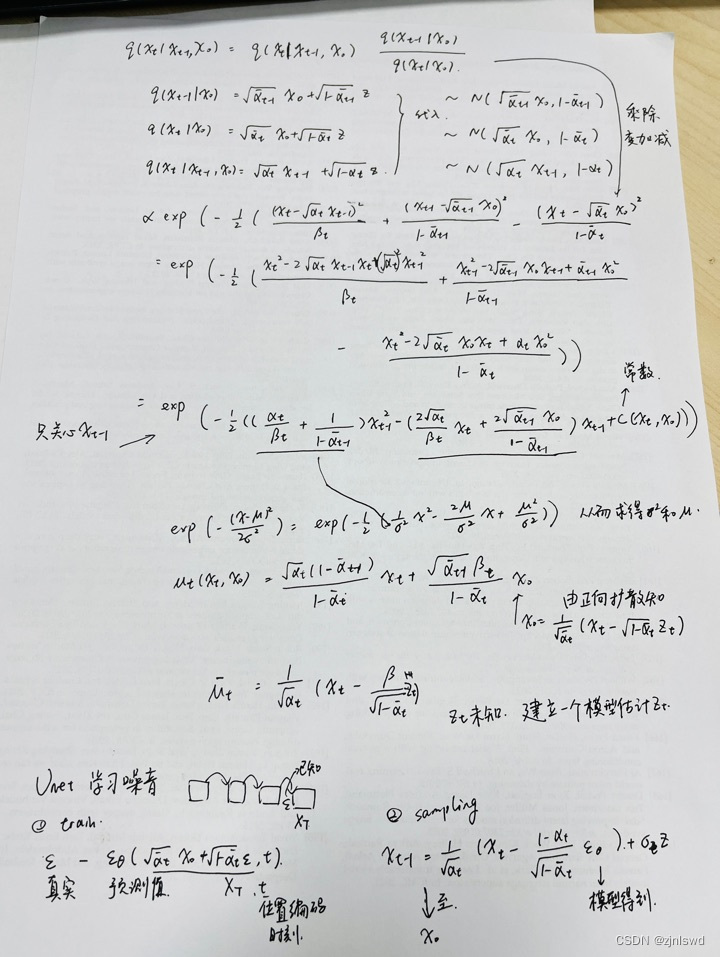 q(xt|xt-1,x0) = q(xt|xt-1, x0) q(xt-1|x0) / q(xt|x0).
q(xt-1|x0) = √ᾱt-1 x0 + √1-ᾱt-1 z ~ N(√ᾱt-1 x0, 1-ᾱt-1)
q(xt|x0) = √ᾱt x0 + √1-ᾱt z 代入. ~ N(√ᾱt x0, 1-ᾱt)
q(xt|xt-1,x0) = √αt xt-1 + √1-αt z. ~ N(√αt xt-1, 1-αt)
乘除
变加减
∝ exp (-1/2 ( (xt-√αt xt-1)²/βt + (xt-1-√ᾱt-1 x0)²/1-ᾱt-1 - (xt-√ᾱt x0)²/1-ᾱt
= exp (-1/2 ( xt²-2√αt xt-1xt+(√αt)²xt-1²/βt + xt-1²-2√ᾱt-1 x0xt-1+ᾱt-1 x0²/1-ᾱt-1
- xt²-2√ᾱt x0xt + αt x0²/1-ᾱt ))
常数.
= exp (-1/2 ((αt/βt + 1/1-ᾱt-1)xt-1² - (2√αt/βt xt + 2√ᾱt-1 x0/1-ᾱt-1) xt-1+C(xt,x0)))
只关心xt-1
exp(-(x-μ)²/2σ²) = exp(-1/2 (1/σ² x² - 2μ/σ² x + μ²/σ²)) 从而求得σ²和μ.
μt(xt,x0) = √αt(1-ᾱt-1)/1-ᾱt xt + √ᾱt-1 βt/1-ᾱt x0
由正向扩散知
x0 = 1/√ᾱt (xt-√1-ᾱt zt)
μ̄t = 1/√αt (xt - β/√1-ᾱt zt)
zt未知. 建立一个模型估计zt.
Unet 学习噪音
已知
ε
xT
① train.
ε - εθ(√ᾱt x0+√1-ᾱt ε, t).
真实 预测值. xT . t
位置编码
时刻.
② sampling
xt-1 = 1/√αt (xt - 1-αt/√1-ᾱt εθ) + σt z
至. 模型得到.
x0
CSDN @zjnlswd